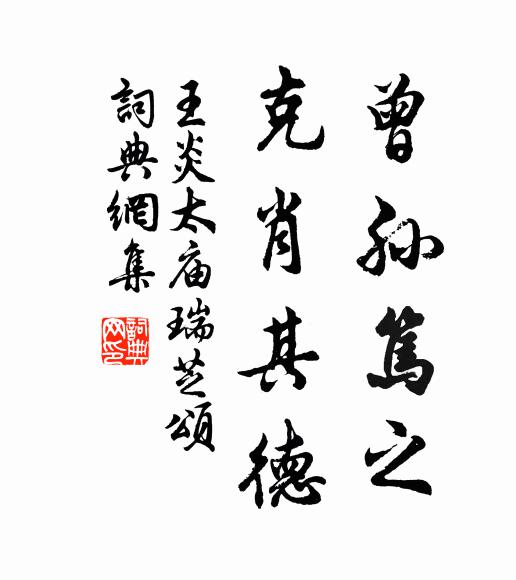 曾孙篤之
克肖其德
王炎太庙瑞芝頌
詞典網集
詞典网印